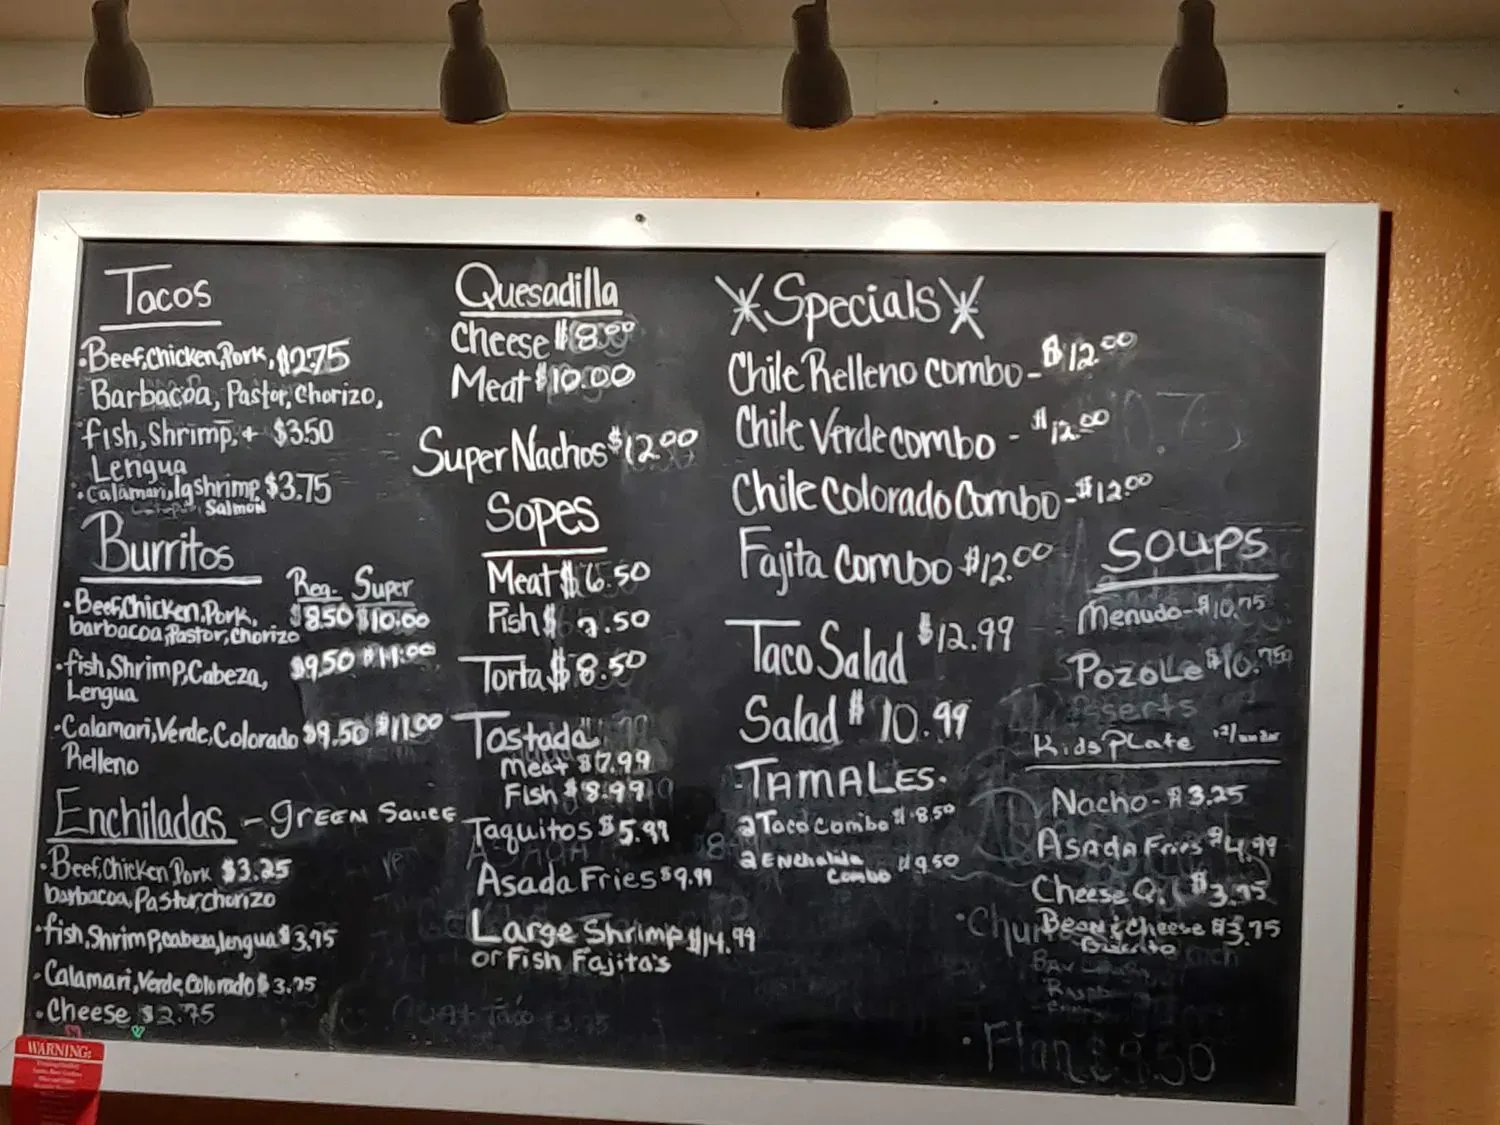 Tacos
•Beef,Chicken,Pork, $2.75
Barbacoa, Pastor, Chorizo,
fish, Shrimp, + $3.50
Lengua
•Calamari, lg shrimp $3.75
Salmon
Burritos
Reg. Super
•Beef,Chicken,Pork, $8.50 $10.00
barbacoa,Pastor,Chorizo
•fish,Shrimp,Cabeza, $9.50 $11.00
Lengua
•Calamari,Verde,Colorado $9.50 $11.00
Relleno
Enchiladas - green Sauce
•Beef,Chicken Pork $3.25
barbacoa, Pastor,chorizo
•fish,Shrimp,cabeza,lengua $3.75
•Calamari,Verde,Colorado $3.75
•Cheese $2.75
Quesadilla
Cheese $8.00
Meat $10.00
Super Nachos $12.00
Sopes
Meat $6.50
Fish $7.50
Torta $8.50
Tostada
Meat $7.99
Fish $8.99
Taquitos $5.99
Asada Fries $9.99
Large Shrimp $14.99
or Fish Fajita's
*Specials*
Chile Relleno combo - $12.00
Chile Verde combo - $12.00
Chile Colorado Combo - $12.00
Fajita Combo $12.00
Taco Salad $12.99
Salad $10.99
TAMALES.
2 Taco Combo $8.50
2 ENchalida $9.50
Combo
SOUPS
Menudo - $10.75
PozoLe $10.75
Kids Plate 12/under
Nacho - $3.25
Asada Fries $4.99
Cheese Q. $3.75
Bean & Cheese $3.75
Burrito
•Flan $
WARNING: